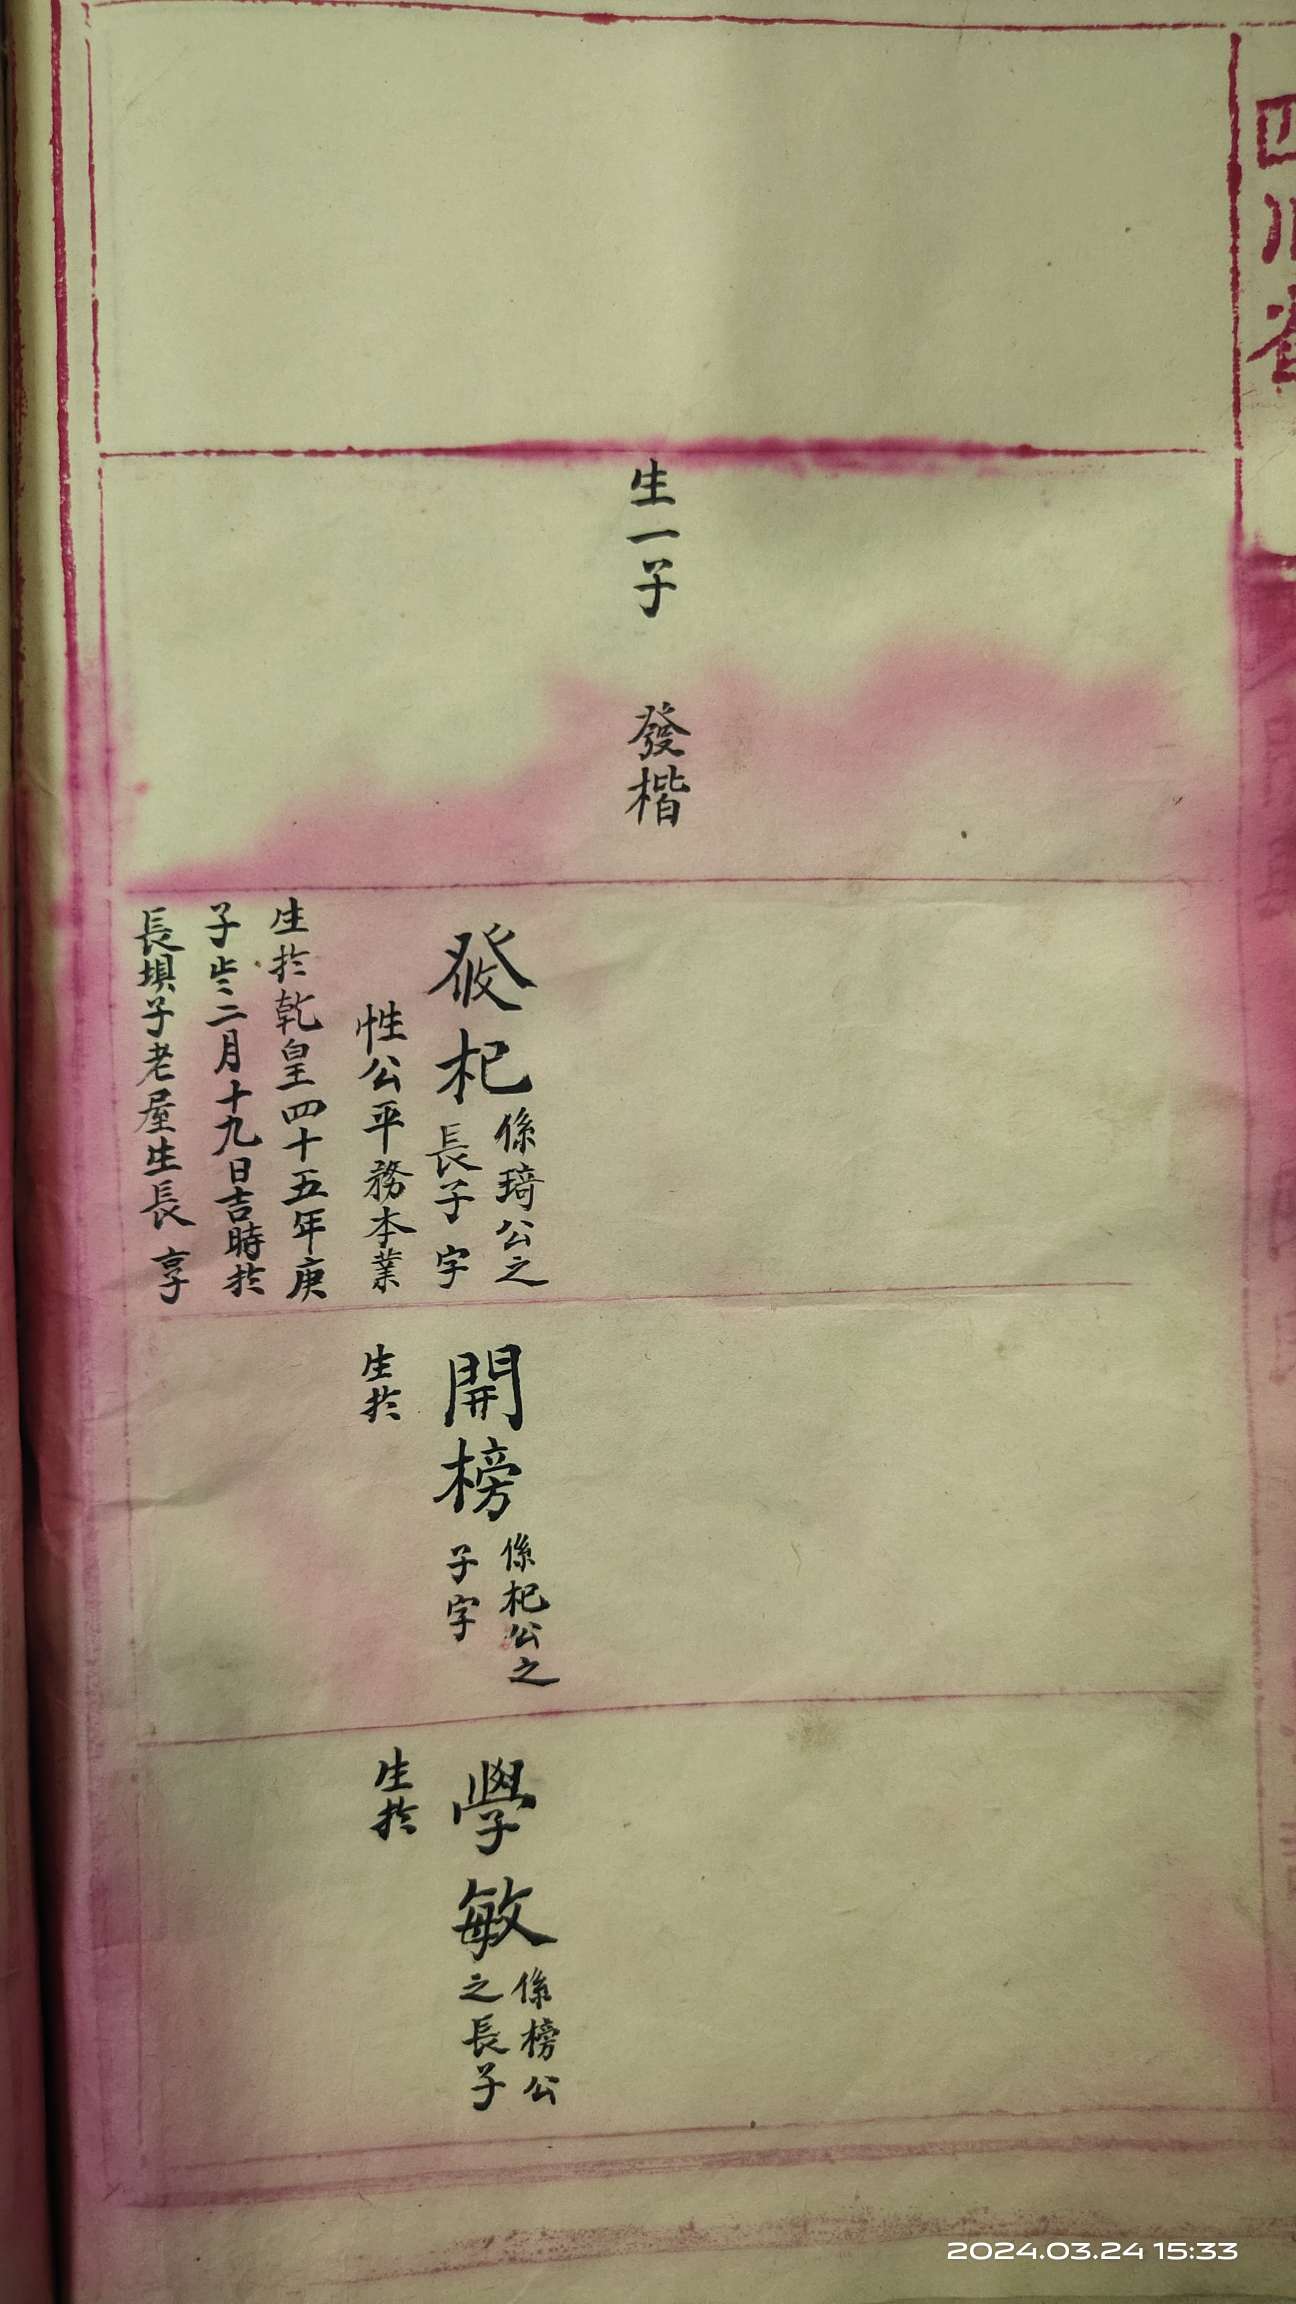 四川省
生一子 發楷
發杞
係琦公之
長子字
性公平務本業
生於乾皇四十五年庚
子歲二月十九日吉時於
長垻子老屋生長 享
開榜
係杞公之
子字
生於
學敏
係榜公
之長子
生於
2024.03.24 15:33